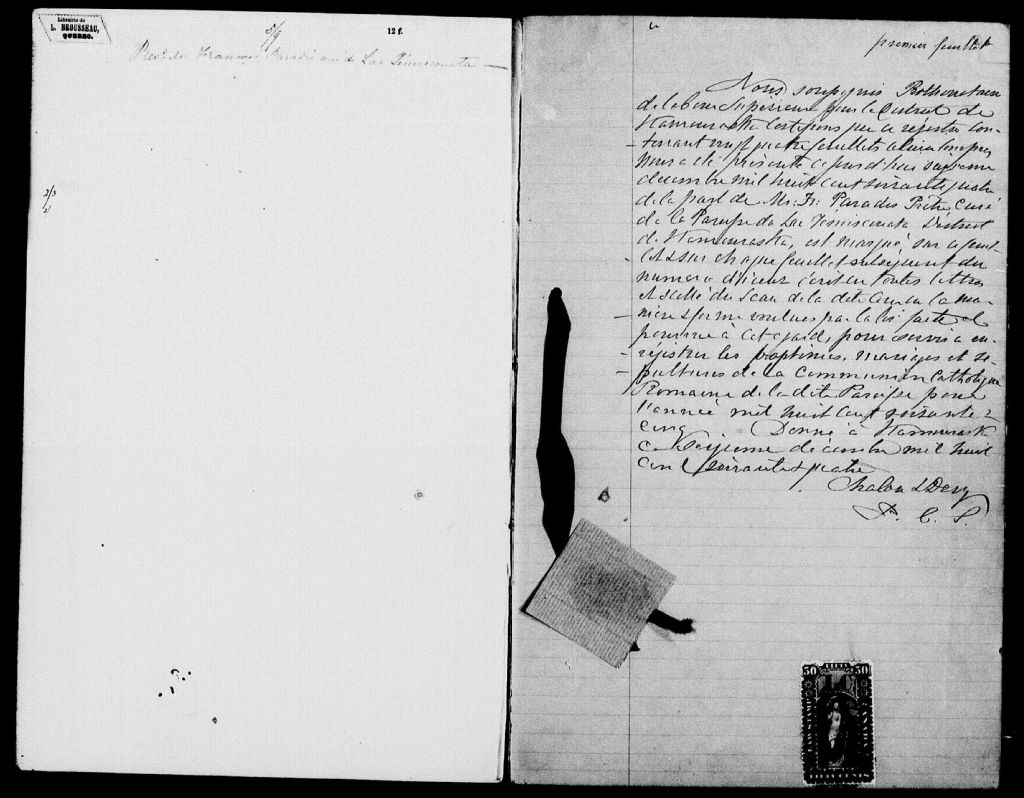 Librairie de
L. BROUSSEAU,
QUEBEC.
5/9
12 f.
Revd. Mr François Paradis curé de Lac Témiscouata
2/3
premier feuillet
Nous soussignés Prothonotaire
de la Cour Supérieure pour le District de
Kamouraska Certifions que ce régistre Con-
tenant vingt quatre feuillets celui-ci compris
nous a été présenté ce jourd'hui
décembre mil huit cent soixante quatre
de la part de Mr. Fr. Paradis Prêtre Curé
de la Paroisse du Lac Témiscouata District
de Kamouraska, est marqué sur ce feuil-
let & sur chaque feuillet subséquent du
numéro d'iceux écrit en toutes lettres
et scellé du Sceau de la dite Cour en la ma-
nière & forme voulues par la loi faite et
pourvue à cet égard, pour servir à en-
régistrer les baptêmes, mariages et sé-
pultures de la Communion Catholique
Romaine de la dite Paroisse pour
l'année mil huit cent soixante &
cinq Donné à Kamouraska
ce décembre mil huit
cent soixante & quatre
P. C. S.
50 FIFTY 50
FIFTY CENTS